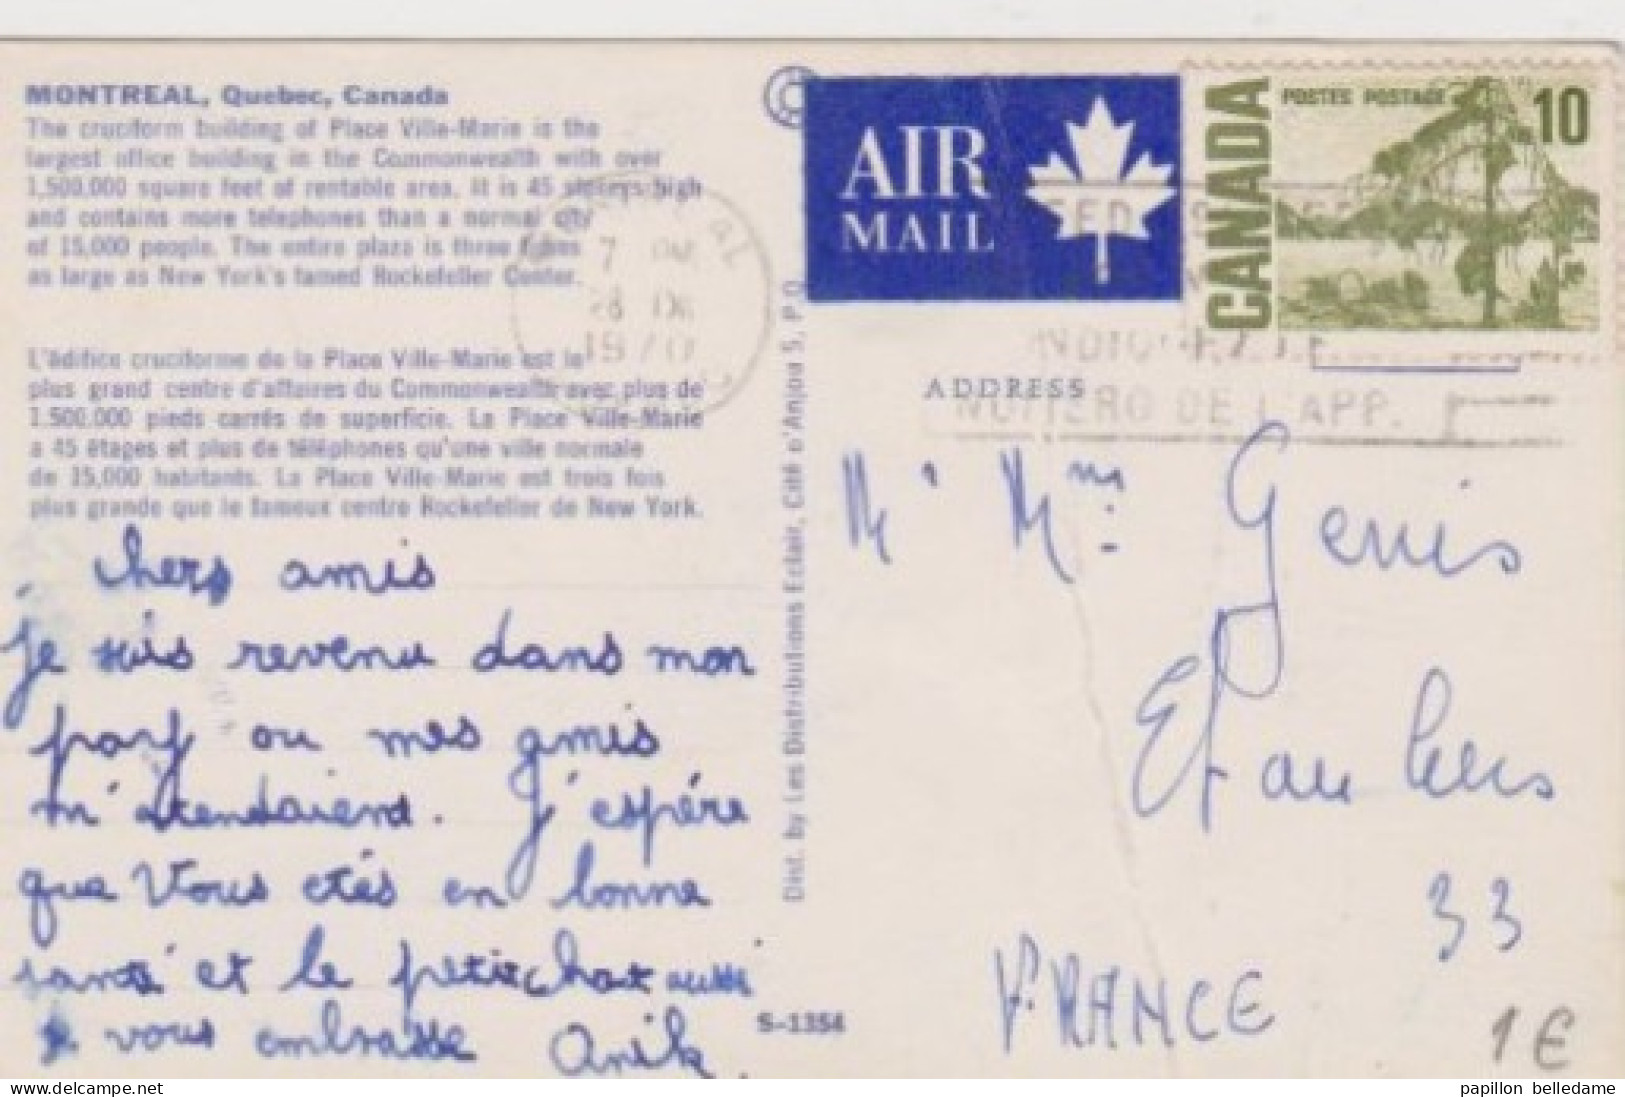 MONTREAL, Quebec, Canada
The cruciform building of Place Ville-Marie is the
largest office building in the Commonwealth with over
1,500,000 square feet of rentable area. It is 45 storeys high
and contains more telephones than a normal city
of 15,000 people. The entire plaza is three times
as large as New York's famed Rockefeller Center.
L'édifice cruciforme de la Place Ville-Marie est le
plus grand centre d'affaires du Commonwealth avec plus de
1,500,000 pieds carrés de superficie. La Place Ville-Marie
a 45 étages et plus de téléphones qu'une ville normale
de 15,000 habitants. La Place Ville-Marie est trois fois
plus grande que le fameux centre Rockefeller de New York.
chers amis
je suis revenu dans mon
pays ou mes amis
m'attendaient. J'espère
que vous etes en bonne
santé et le petit chat aussi
je vous embrasse Anik.
Dist. by Les Distributions Eclair, Cité d'Anjou 5, P.Q.
S-1354
AIR
MAIL
CANADA
POSTES POSTAGE
10
7 PM
28
1970
NUMERO DE L'APP.
ADDRESS
Mr Mme Genis
Etauliers
33
FRANCE
1 €
papillon belledame